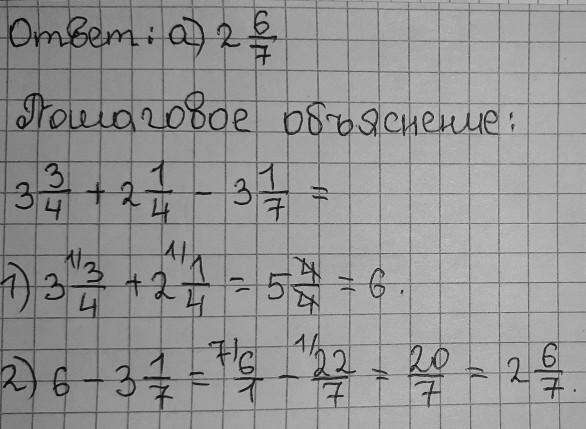 Ответ: а) 2 6/7
Пошаговое объяснение:
3 3/4 + 2 1/4 - 3 1/7 =
1) 3 ¹⁾3/4 + 2 ¹⁾1/4 = 5 4/4 = 6.
2) 6 - 3 1/7 = ⁷⁾6/1 - ¹⁾22/7 = 20/7 = 2 6/7.